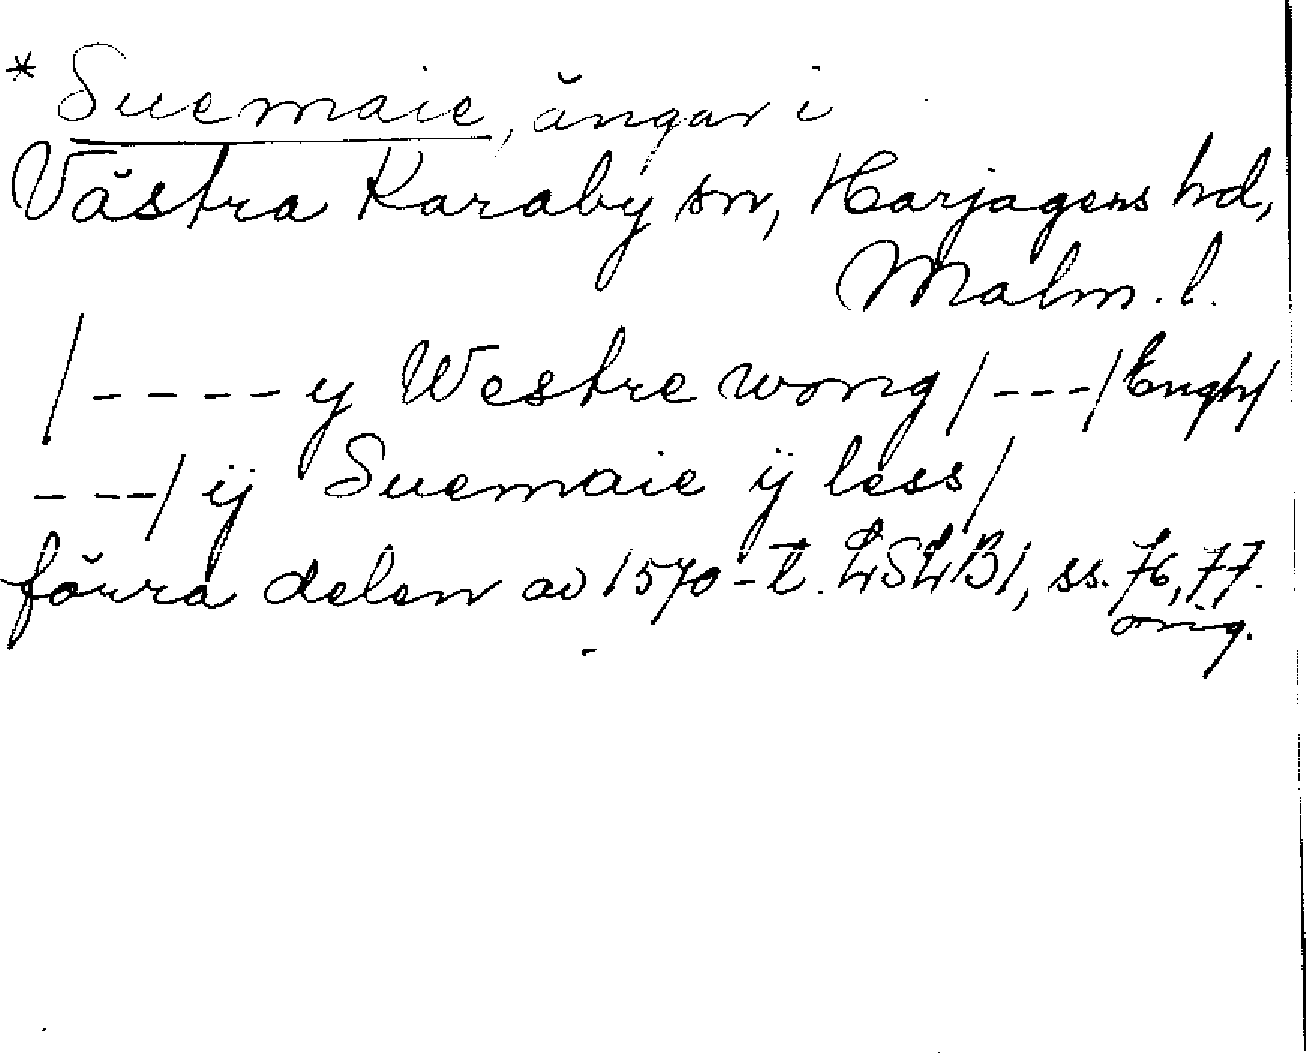 * Suemaie, ängar i
Västra Karaby sn, Harjagers hd,
Malm. l.
/---- y Westre wong/---/Engh/
---/ ÿ Suemaie ÿ less/
förra delen av 1570-t. LSLB1, ss. 76, 77.
orig.